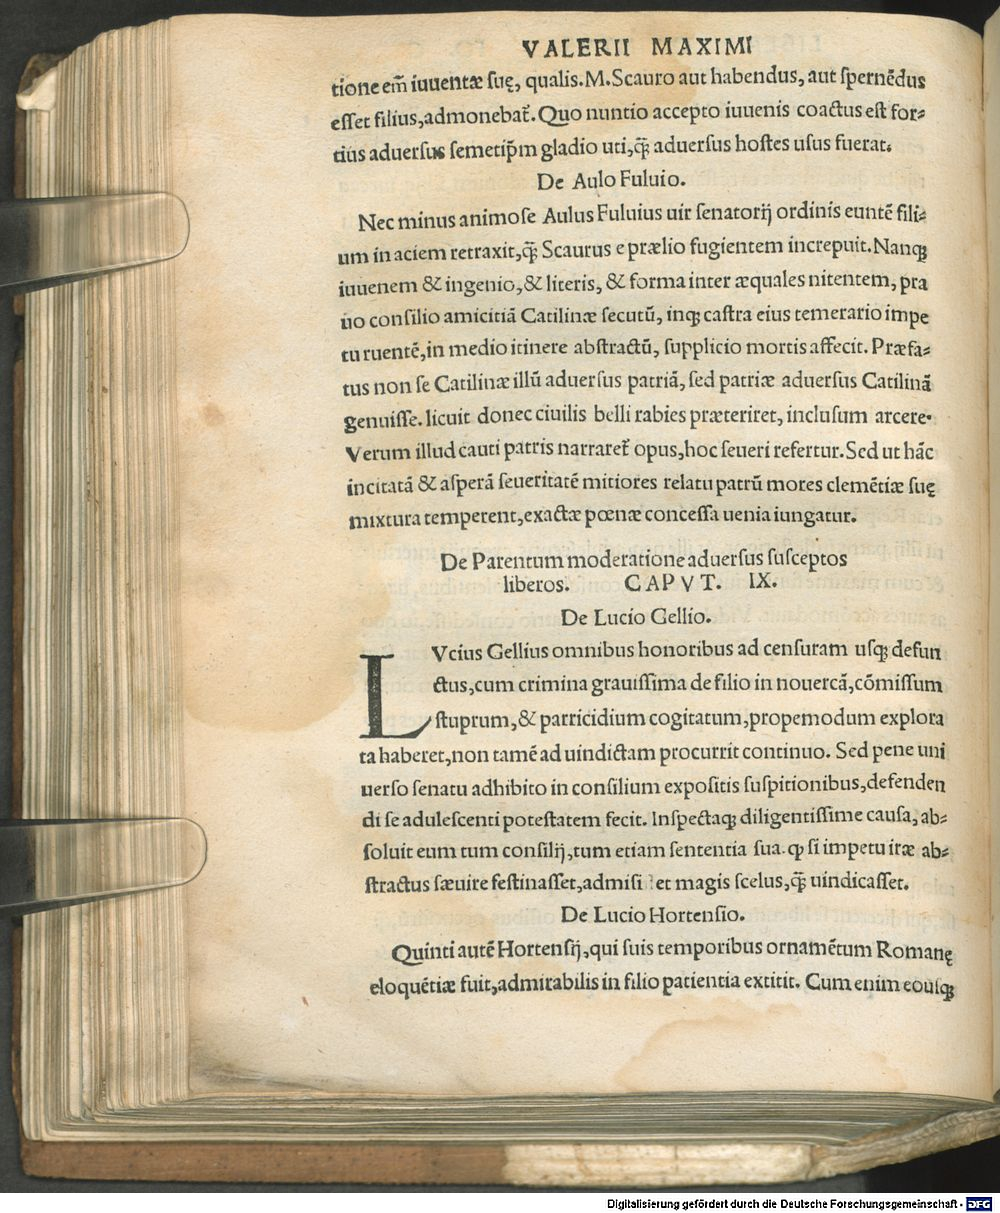 VALERII MAXIMI
tione em̄ iuuentæ suę, qualis. M. Scauro aut habendus, aut spernēdus
esset filius, admonebat̄. Quo nuntio accepto iuuenis coactus est for-
tius aduersus semetip̄m gladio uti, q̄ꝫ aduersus hostes usus fuerat.
De Aulo Fuluio.
Nec minus animose Aulus Fuluius uir senatorij ordinis euntē fili-
um in aciem retraxit, q̄ꝫ Scaurus e prælio fugientem increpuit. Nanqꝫ
iuuenem & ingenio, & literis, & forma inter æquales nitentem, pra
uo consilio amicitiā Catilinæ secutū, inqꝫ castra eius temerario impe
tu ruentē, in medio itinere abstractū, supplicio mortis affecit. Præfa-
tus non se Catilinæ illū aduersus patriā, sed patriæ aduersus Catilinā
genuisse. licuit donec ciuilis belli rabies præteriret, inclusum arcere.
Verum illud cauti patris narraret̄ opus, hoc seueri refertur. Sed ut hāc
incitatā & asperā seueritatē mitiores relatu patrū mores clemētiæ suę
mixtura temperent, exactæ pœnæ concessa uenia iungatur.
De Parentum moderatione aduersus susceptos
liberos. CAPVT. IX.
De Lucio Gellio.
LVcius Gellius omnibus honoribus ad censuram usqꝫ defun
ctus, cum crimina grauissima de filio in nouercā, cōmissum
stuprum, & parricidium cogitatum, propemodum explora
ta haberet, non tamē ad uindictam procurrit continuo. Sed pene uni
uerso senatu adhibito in consilium expositis suspitionibus, defenden
di se adulescenti potestatem fecit. Inspectaqꝫ diligentissime causa, ab-
soluit eum tum consilij, tum etiam sententia sua. ꝙ si impetu iræ ab-
stractus sæuire festinasset, admisi et magis scelus, q̄ꝫ uindicasset.
De Lucio Hortensio.
Quinti autē Hortensij, qui suis temporibus ornamētum Romanę
eloquētiæ fuit, admirabilis in filio patientia extitit. Cum enim eousqꝫ
Digitalisierung gefördert durch die Deutsche Forschungsgemeinschaft - DFG